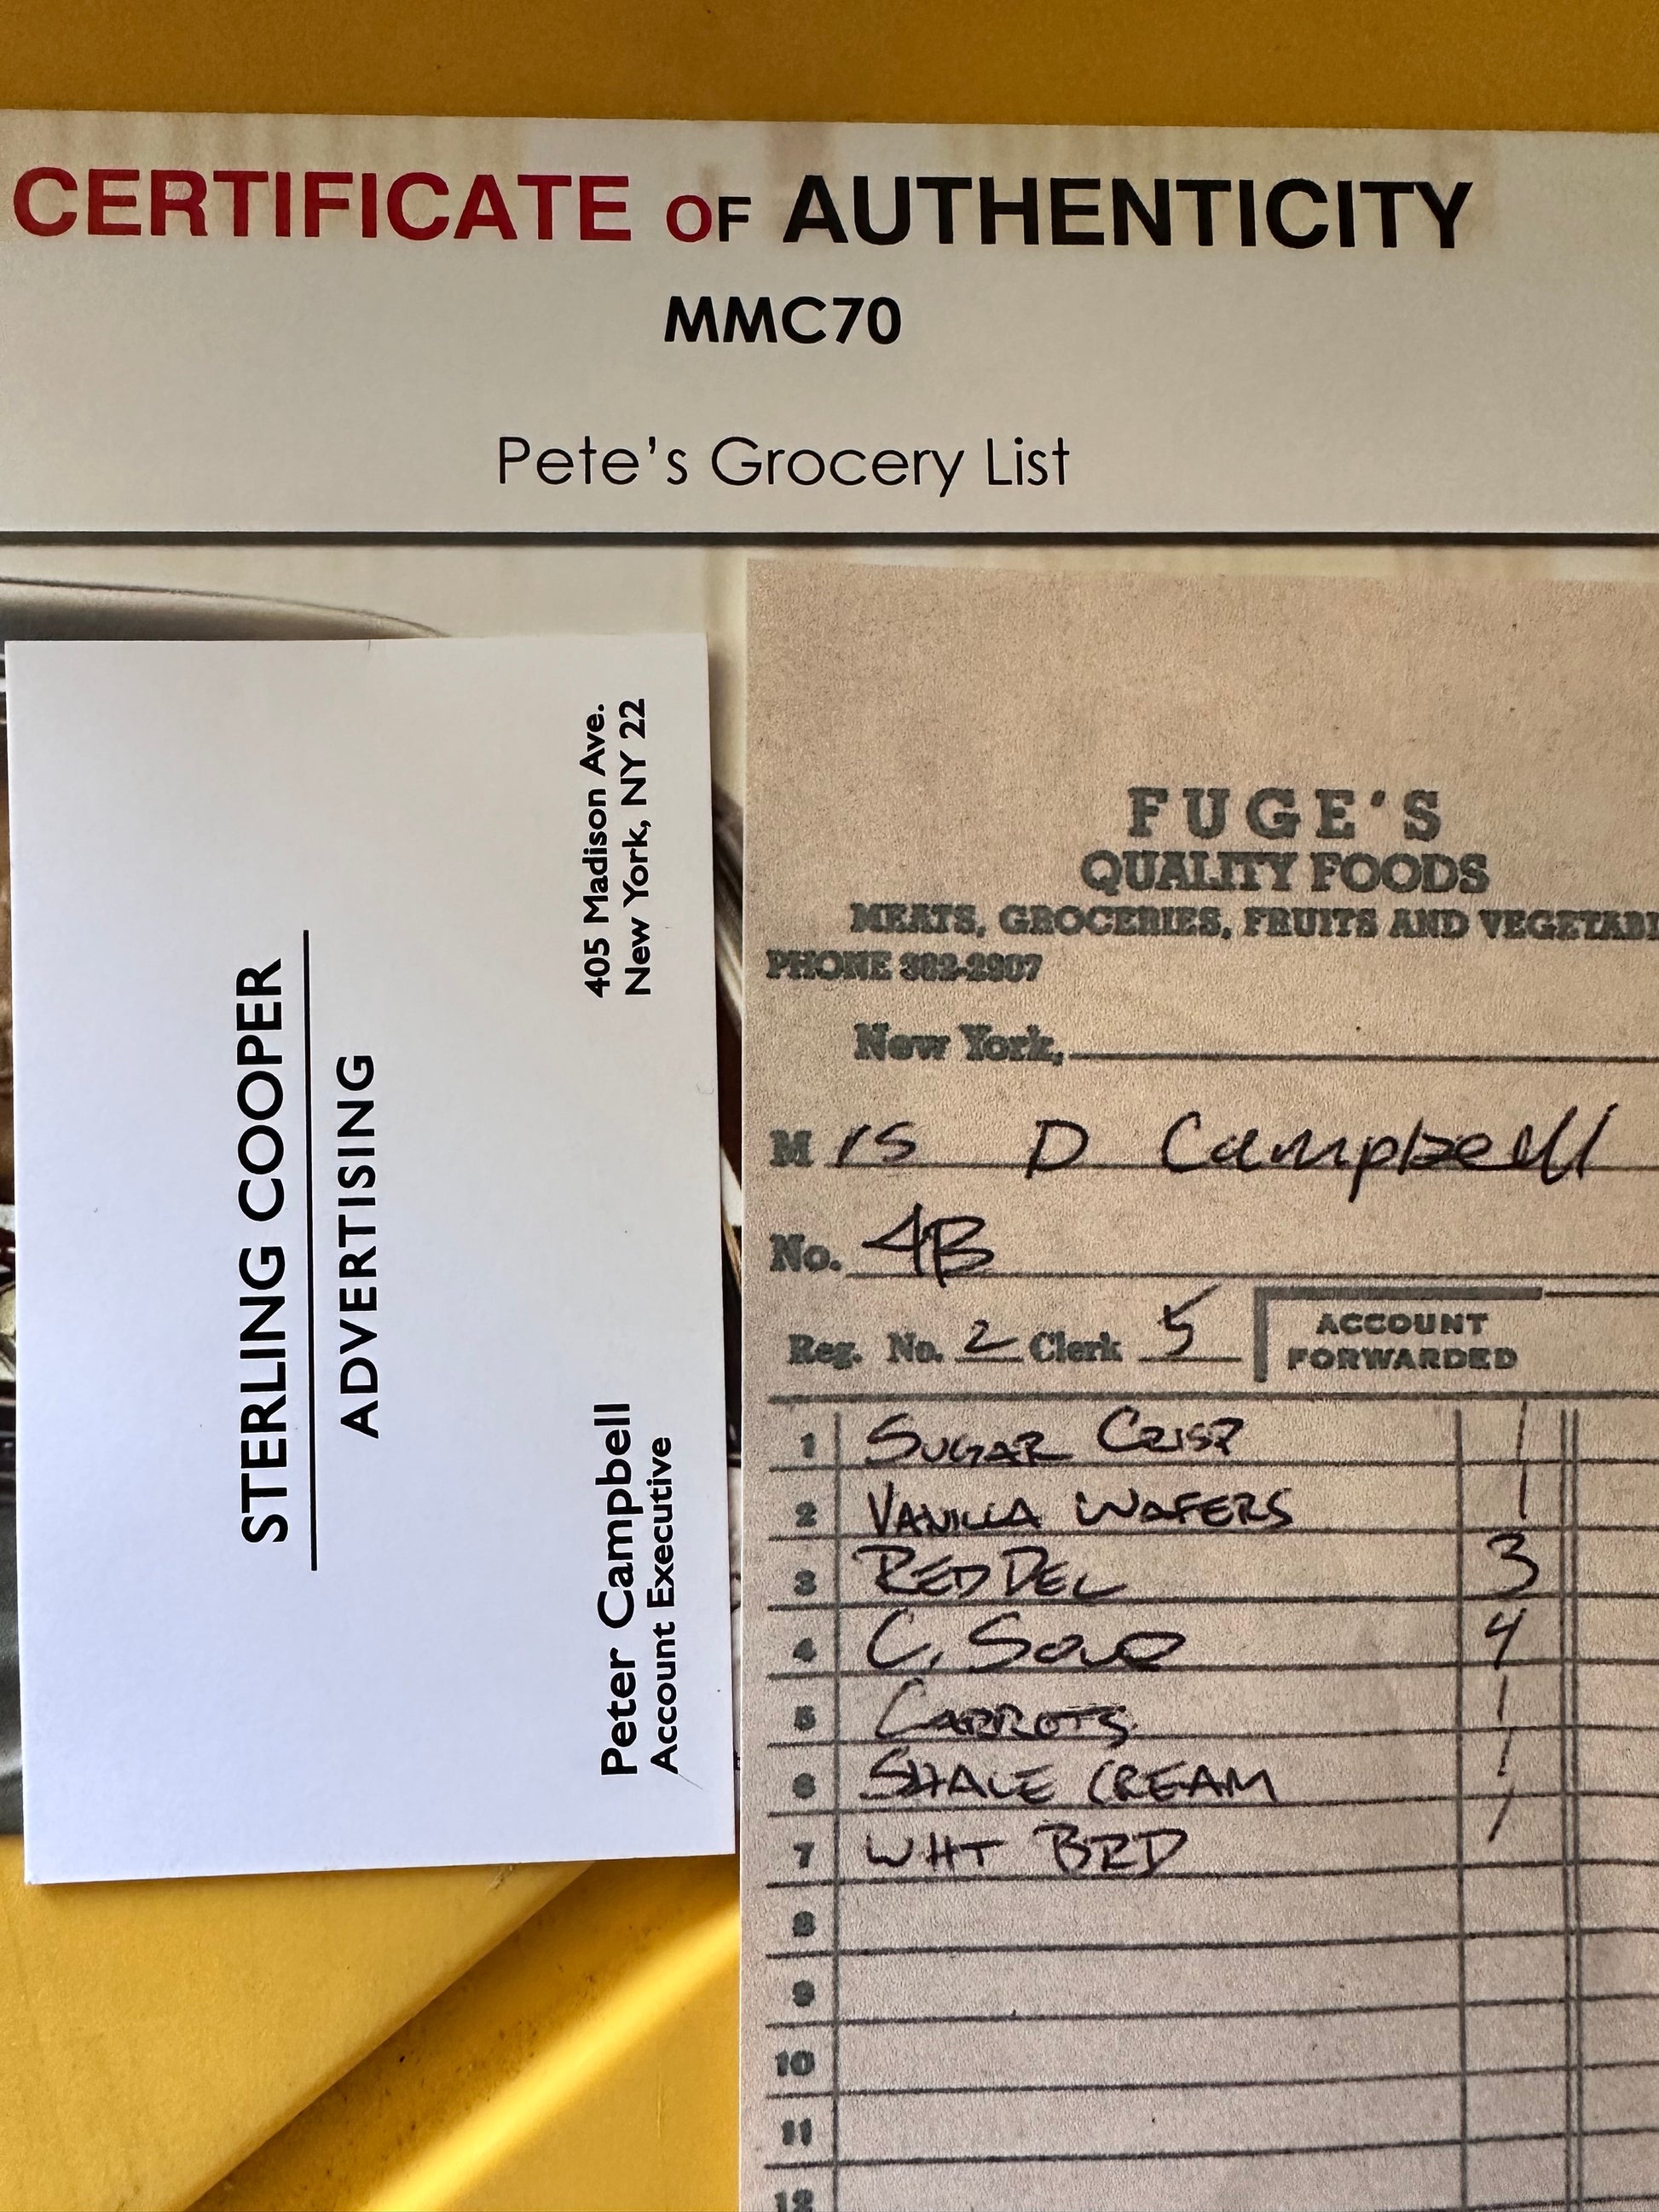 CERTIFICATE OF AUTHENTICITY
MMC70
Pete's Grocery List
STERLING COOPER
ADVERTISING
Peter Campbell
Account Executive
405 Madison Ave.
New York, NY 22
FUGE'S
QUALITY FOODS
MEATS, GROCERIES, FRUITS AND VEGETABL
PHONE 382-2907
New York,
Mrs D Campbell
No. 4B
Reg. No. 2 Clerk 5 ACCOUNT
FORWARDED
1 SUGAR CRISP 1
2 VANILLA WAFERS 1
3 RED DEL 3
4 C. Soup 4
5 CARROTS 1
6 SHAVE CREAM 1
7 WHT BRD 1
8
9
10
11
12